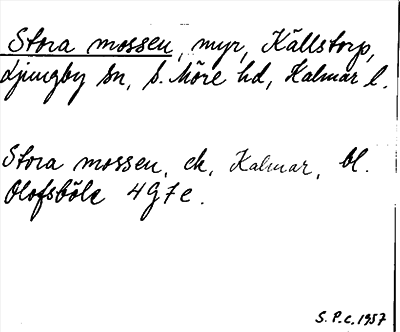 Stora mossen, myr, Källstorp,
Ljungby sn, s. Möre hd, Kalmar l.
Stora mossen, ek, Kalmar, bl.
Olofsböle 4G7e.
S. P. c. 1957